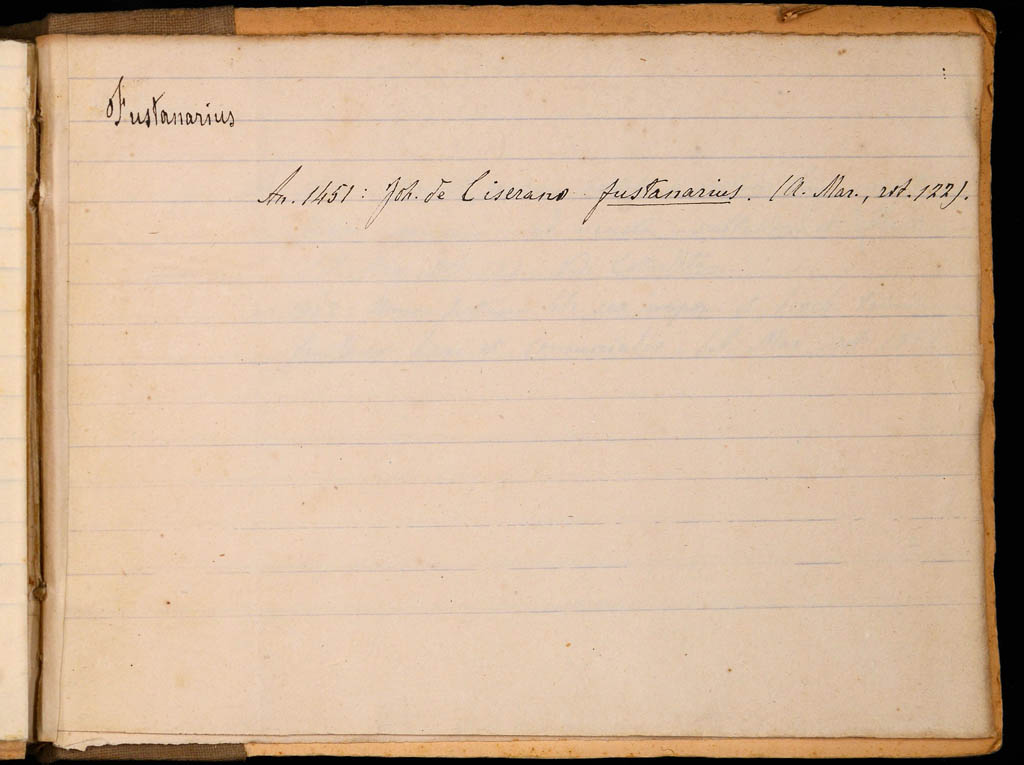 Fustanarius
An. 1451: Joh. de Ciserano fustanarius. (A. Mar., rot. 122).